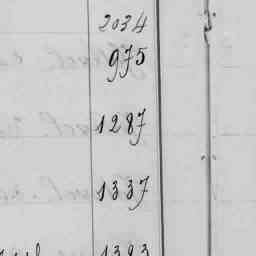 2034
975
1287
1337
1393